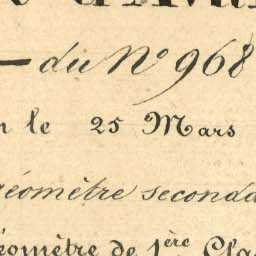 du N° 968
le 25 Mars
géomètre seconda
éomètre de 1ère Clas